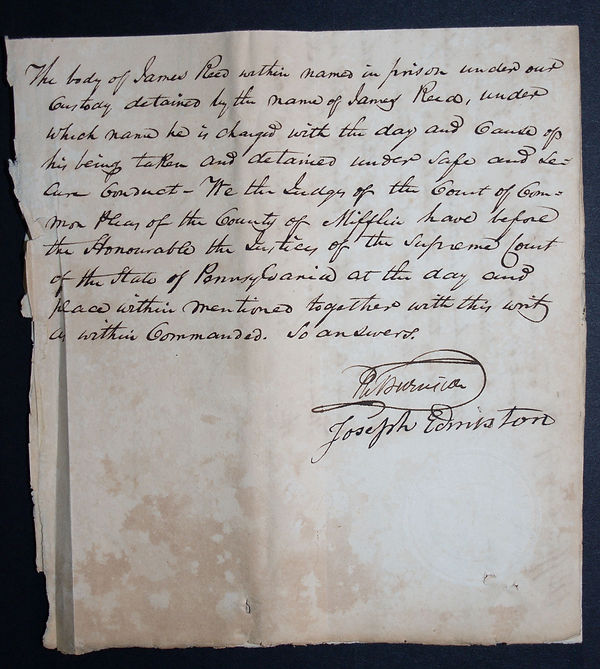 The body of James Reed within named in prison under our
Custody detained by the name of James Reed, under
which name he is charged with the day and Cause of
his being taken and detained under Safe and Se-
cure Conduct - We the Judges of the Court of Com-
mon Pleas of the County of Mifflin have before
the Honourable the Justices of the Supreme Court
of the State of Pennsylvania at the day and
place within mentioned together with this writ
as within Commanded. So answers.
Joseph Edmiston